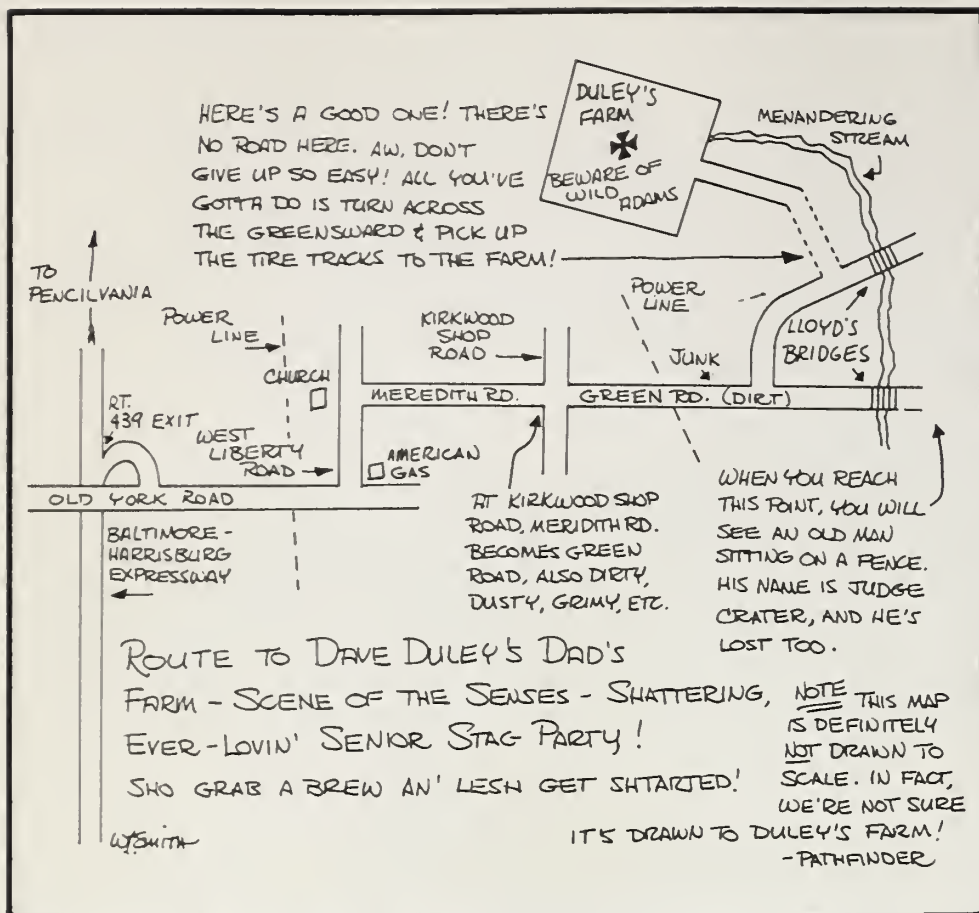 HERE'S A GOOD ONE! THERE'S
NO ROAD HERE. AW, DON'T
GIVE UP SO EASY! ALL YOU'VE
GOTTA DO IS TURN ACROSS
THE GREENSWARD & PICK UP
THE TIRE TRACKS TO THE FARM!
DULEY'S
FARM
BEWARE OF
WILD ADAMS
MENANDERING
STREAM
TO
PENCILVANIA
POWER
LINE
CHURCH
KIRKWOOD
SHOP
ROAD
POWER
LINE
JUNK
LLOYD'S
BRIDGES
RT.
439 EXIT
WEST
LIBERTY
ROAD
MEREDITH RD.
GREEN RD. (DIRT)
AMERICAN
GAS
OLD YORK ROAD
BALTIMORE -
HARRISBURG
EXPRESSWAY
AT KIRKWOOD SHOP
ROAD, MERIDITH RD.
BECOMES GREEN
ROAD, ALSO DIRTY,
DUSTY, GRIMY, ETC.
WHEN YOU REACH
THIS POINT, YOU WILL
SEE AN OLD MAN
SITTING ON A FENCE.
HIS NAME IS JUDGE
CRATER, AND HE'S
LOST TOO.
ROUTE TO DAVE DULEY'S DAD'S
FARM - SCENE OF THE SENSES - SHATTERING,
EVER-LOVIN' SENIOR STAG PARTY!
SHO GRAB A BREW AN' LESH GET SHTARTED!
NOTE THIS MAP
IS DEFINITELY
NOT DRAWN TO
SCALE. IN FACT,
WE'RE NOT SURE
IT'S DRAWN TO DULEY'S FARM!
-PATHFINDER